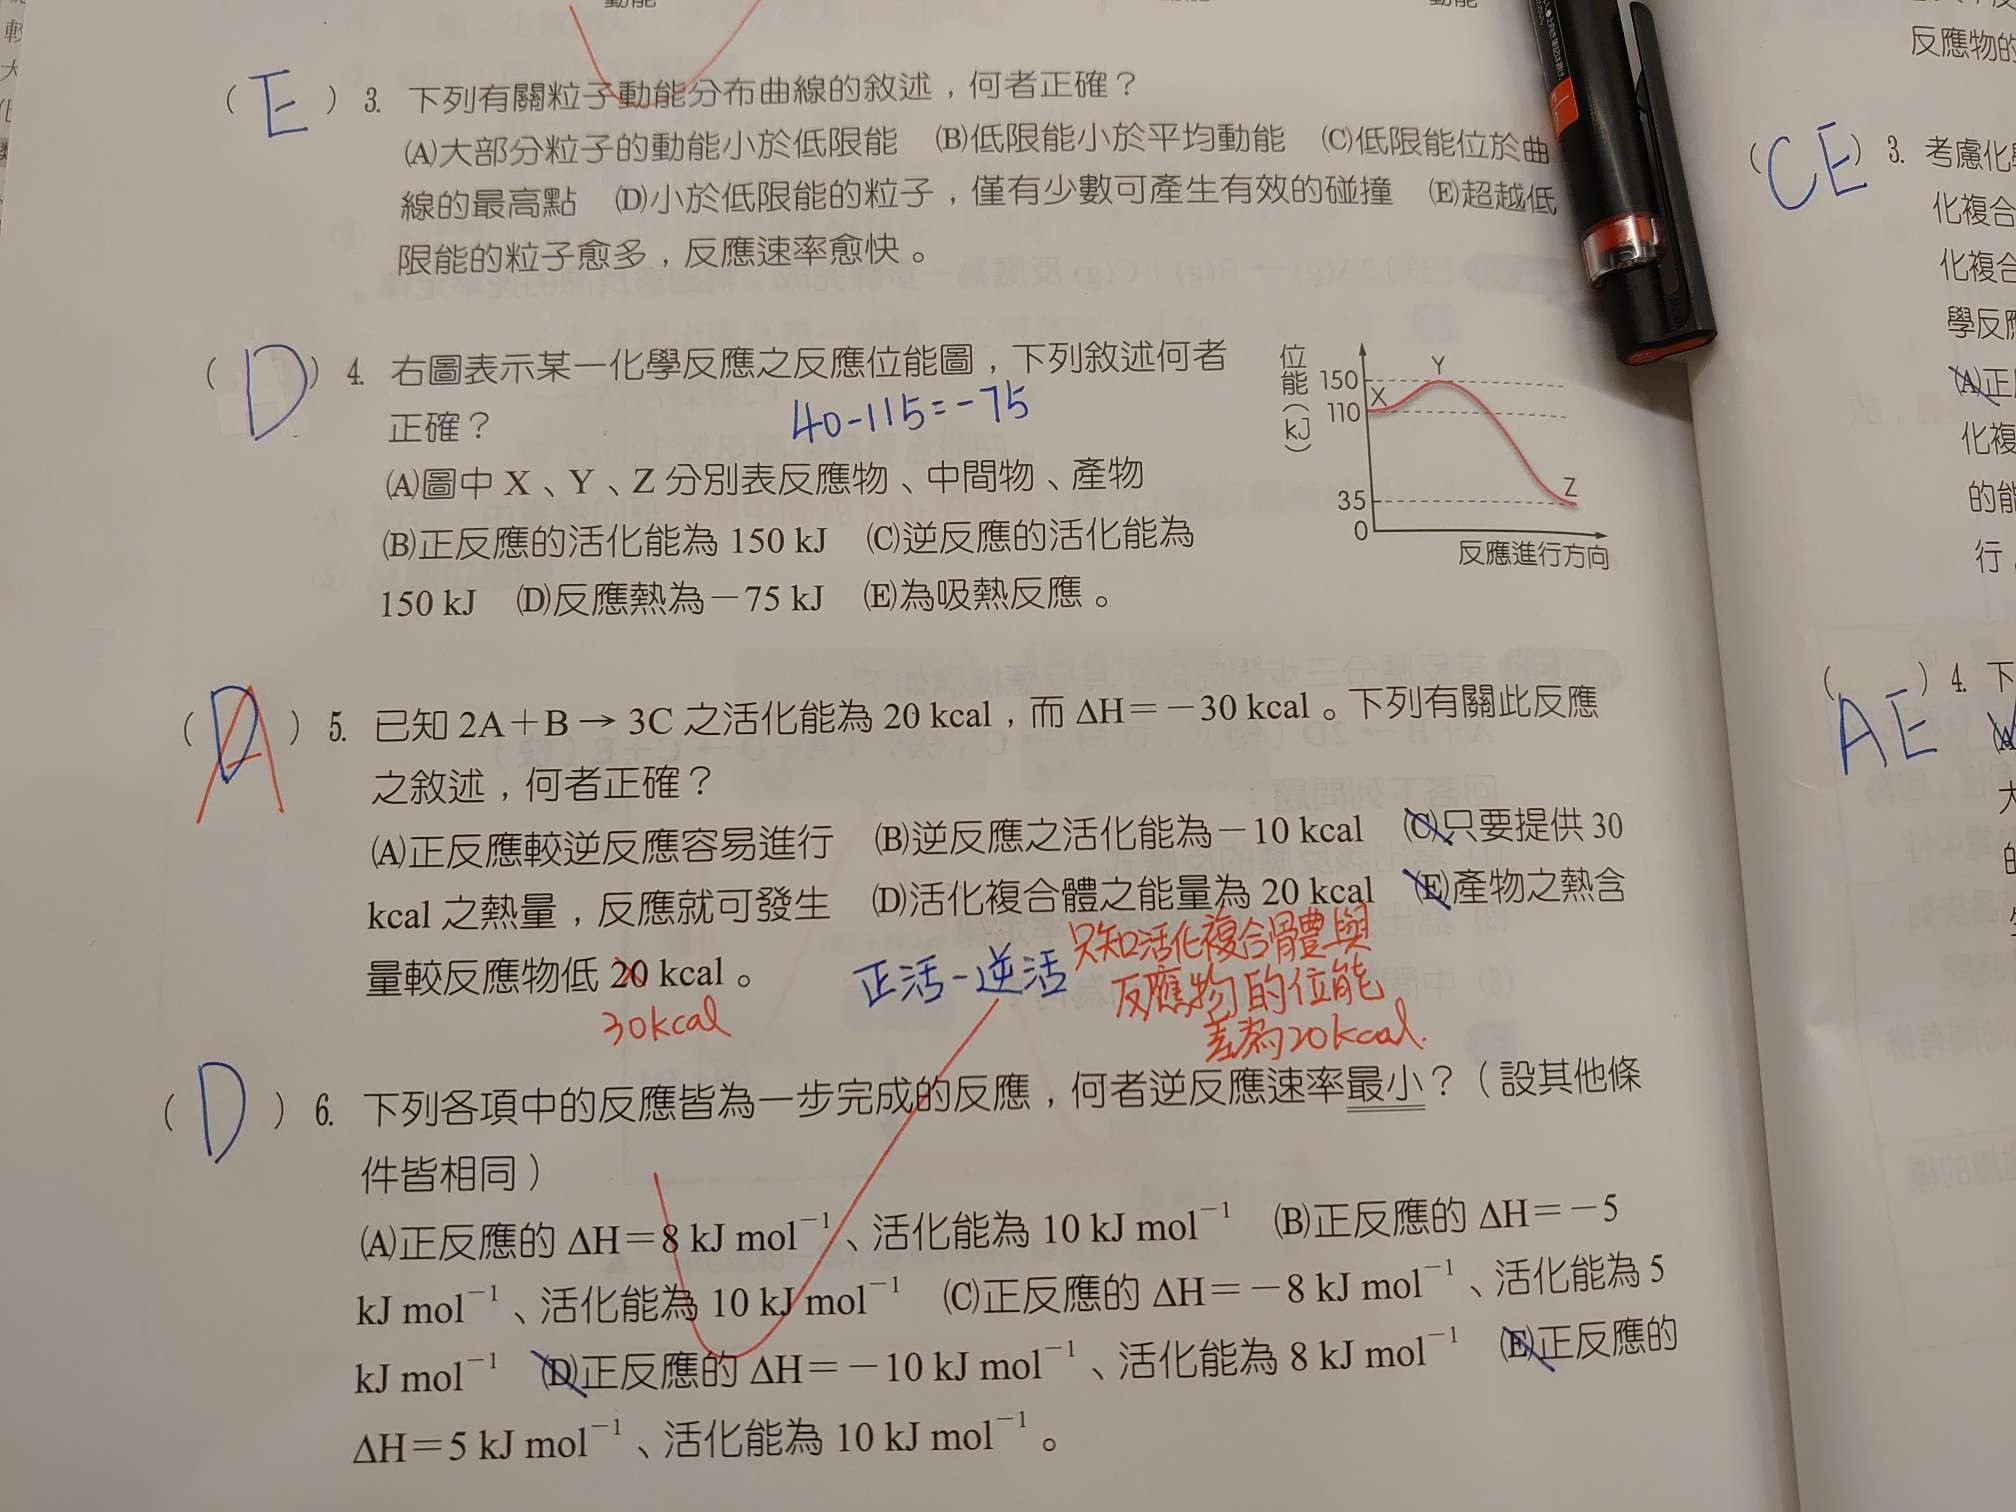 動能
動能
(E) 3. 下列有關粒子動能分布曲線的敘述，何者正確？
(A)大部分粒子的動能小於低限能 (B)低限能小於平均動能 (C)低限能位於曲
線的最高點 (D)小於低限能的粒子，僅有少數可產生有效的碰撞 (E)超越低
限能的粒子愈多，反應速率愈快。
(D) 4. 右圖表示某一化學反應之反應位能圖，下列敘述何者
正確？
40-115=-75
(A)圖中 X、Y、Z 分別表反應物、中間物、產物
(B)正反應的活化能為 150 kJ (C)逆反應的活化能為
150 kJ (D)反應熱為－75 kJ (E)為吸熱反應。
位能(kJ)
150
110
35
0
X
Y
Z
反應進行方向
(D A) 5. 已知 2A＋B → 3C 之活化能為 20 kcal，而 ΔH＝－30 kcal。下列有關此反應
之敘述，何者正確？
(A)正反應較逆反應容易進行 (B)逆反應之活化能為－10 kcal (C)只要提供 30
kcal 之熱量，反應就可發生 (D)活化複合體之能量為 20 kcal (E)產物之熱含
量較反應物低 20 kcal。
30kcal
正活-逆活
只知活化複合體與
反應物的位能
差為20kcal.
(D) 6. 下列各項中的反應皆為一步完成的反應，何者逆反應速率最小？（設其他條
件皆相同）
(A)正反應的 ΔH＝8 kJ mol⁻¹、活化能為 10 kJ mol⁻¹ (B)正反應的 ΔH＝－5
kJ mol⁻¹、活化能為 10 kJ mol⁻¹ (C)正反應的 ΔH＝－8 kJ mol⁻¹、活化能為 5
kJ mol⁻¹ (D)正反應的 ΔH＝－10 kJ mol⁻¹、活化能為 8 kJ mol⁻¹ (E)正反應的
ΔH＝5 kJ mol⁻¹、活化能為 10 kJ mol⁻¹。
反應物的
(CE) 3. 考慮化
化複合
化複合
學反應
(A)正
化複
的能
行
(AE) 4. 下
(A
大
的